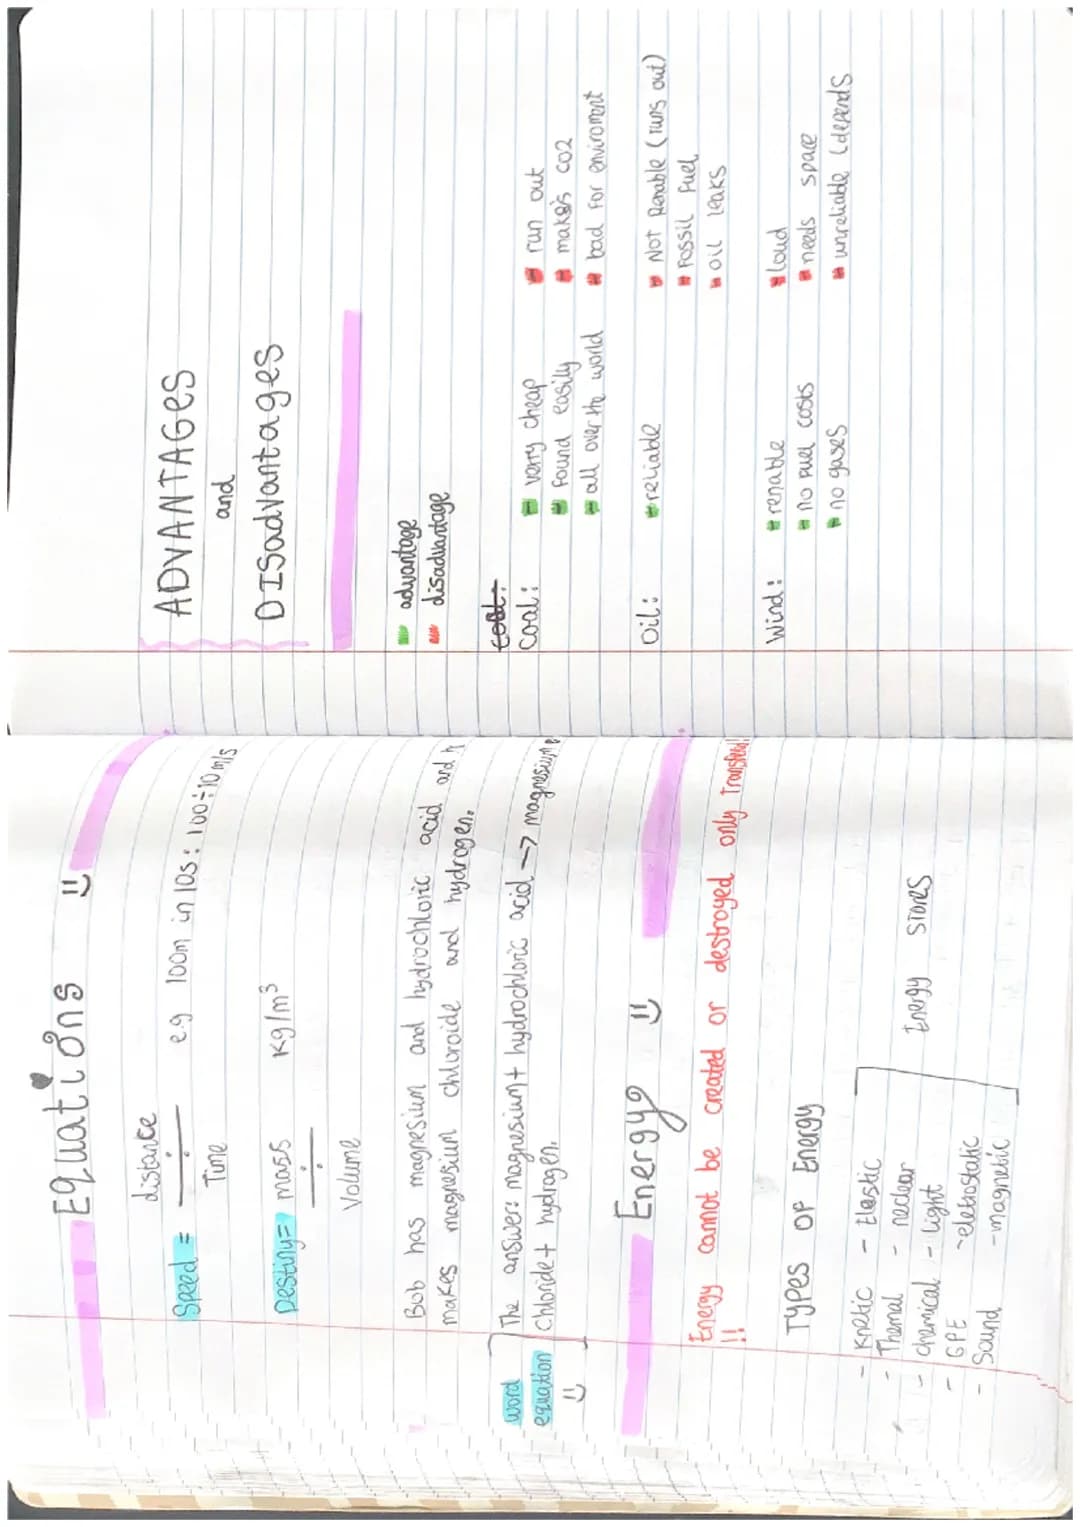 Equations
distance
Speed = ÷ e.g 100m in 10s: 100÷10 m/s
Time
Destiny= mass kg/m³
÷
Volume
Bob has magnesium and hydrochloric acid and
makes magnesium chloroide and hydrogen.
word The answer: magnesium + hydrochloric acid → magnesium
equation chloride + hydrogen.
Energy
Energy cannot be created or destroyed only Transfered!
!!
TYPES OF Energy
- Knetic - Elastic
- Thermal - neclear
- chemical - Light
- GPE - eletrostatic
- Sound - magnetic
Energy stores
ADVANTAGES
and
DISadvantages
advantage
disadvantage
coal:
Coal: verry cheap run out
found easily makes CO2
all over the world bad for enviroment
Oil: reliable Not Renable (runs out)
Fossil Fuel
oil leaks
Wind: renable loud
no fuel costs needs space
no gases unreliable (depends